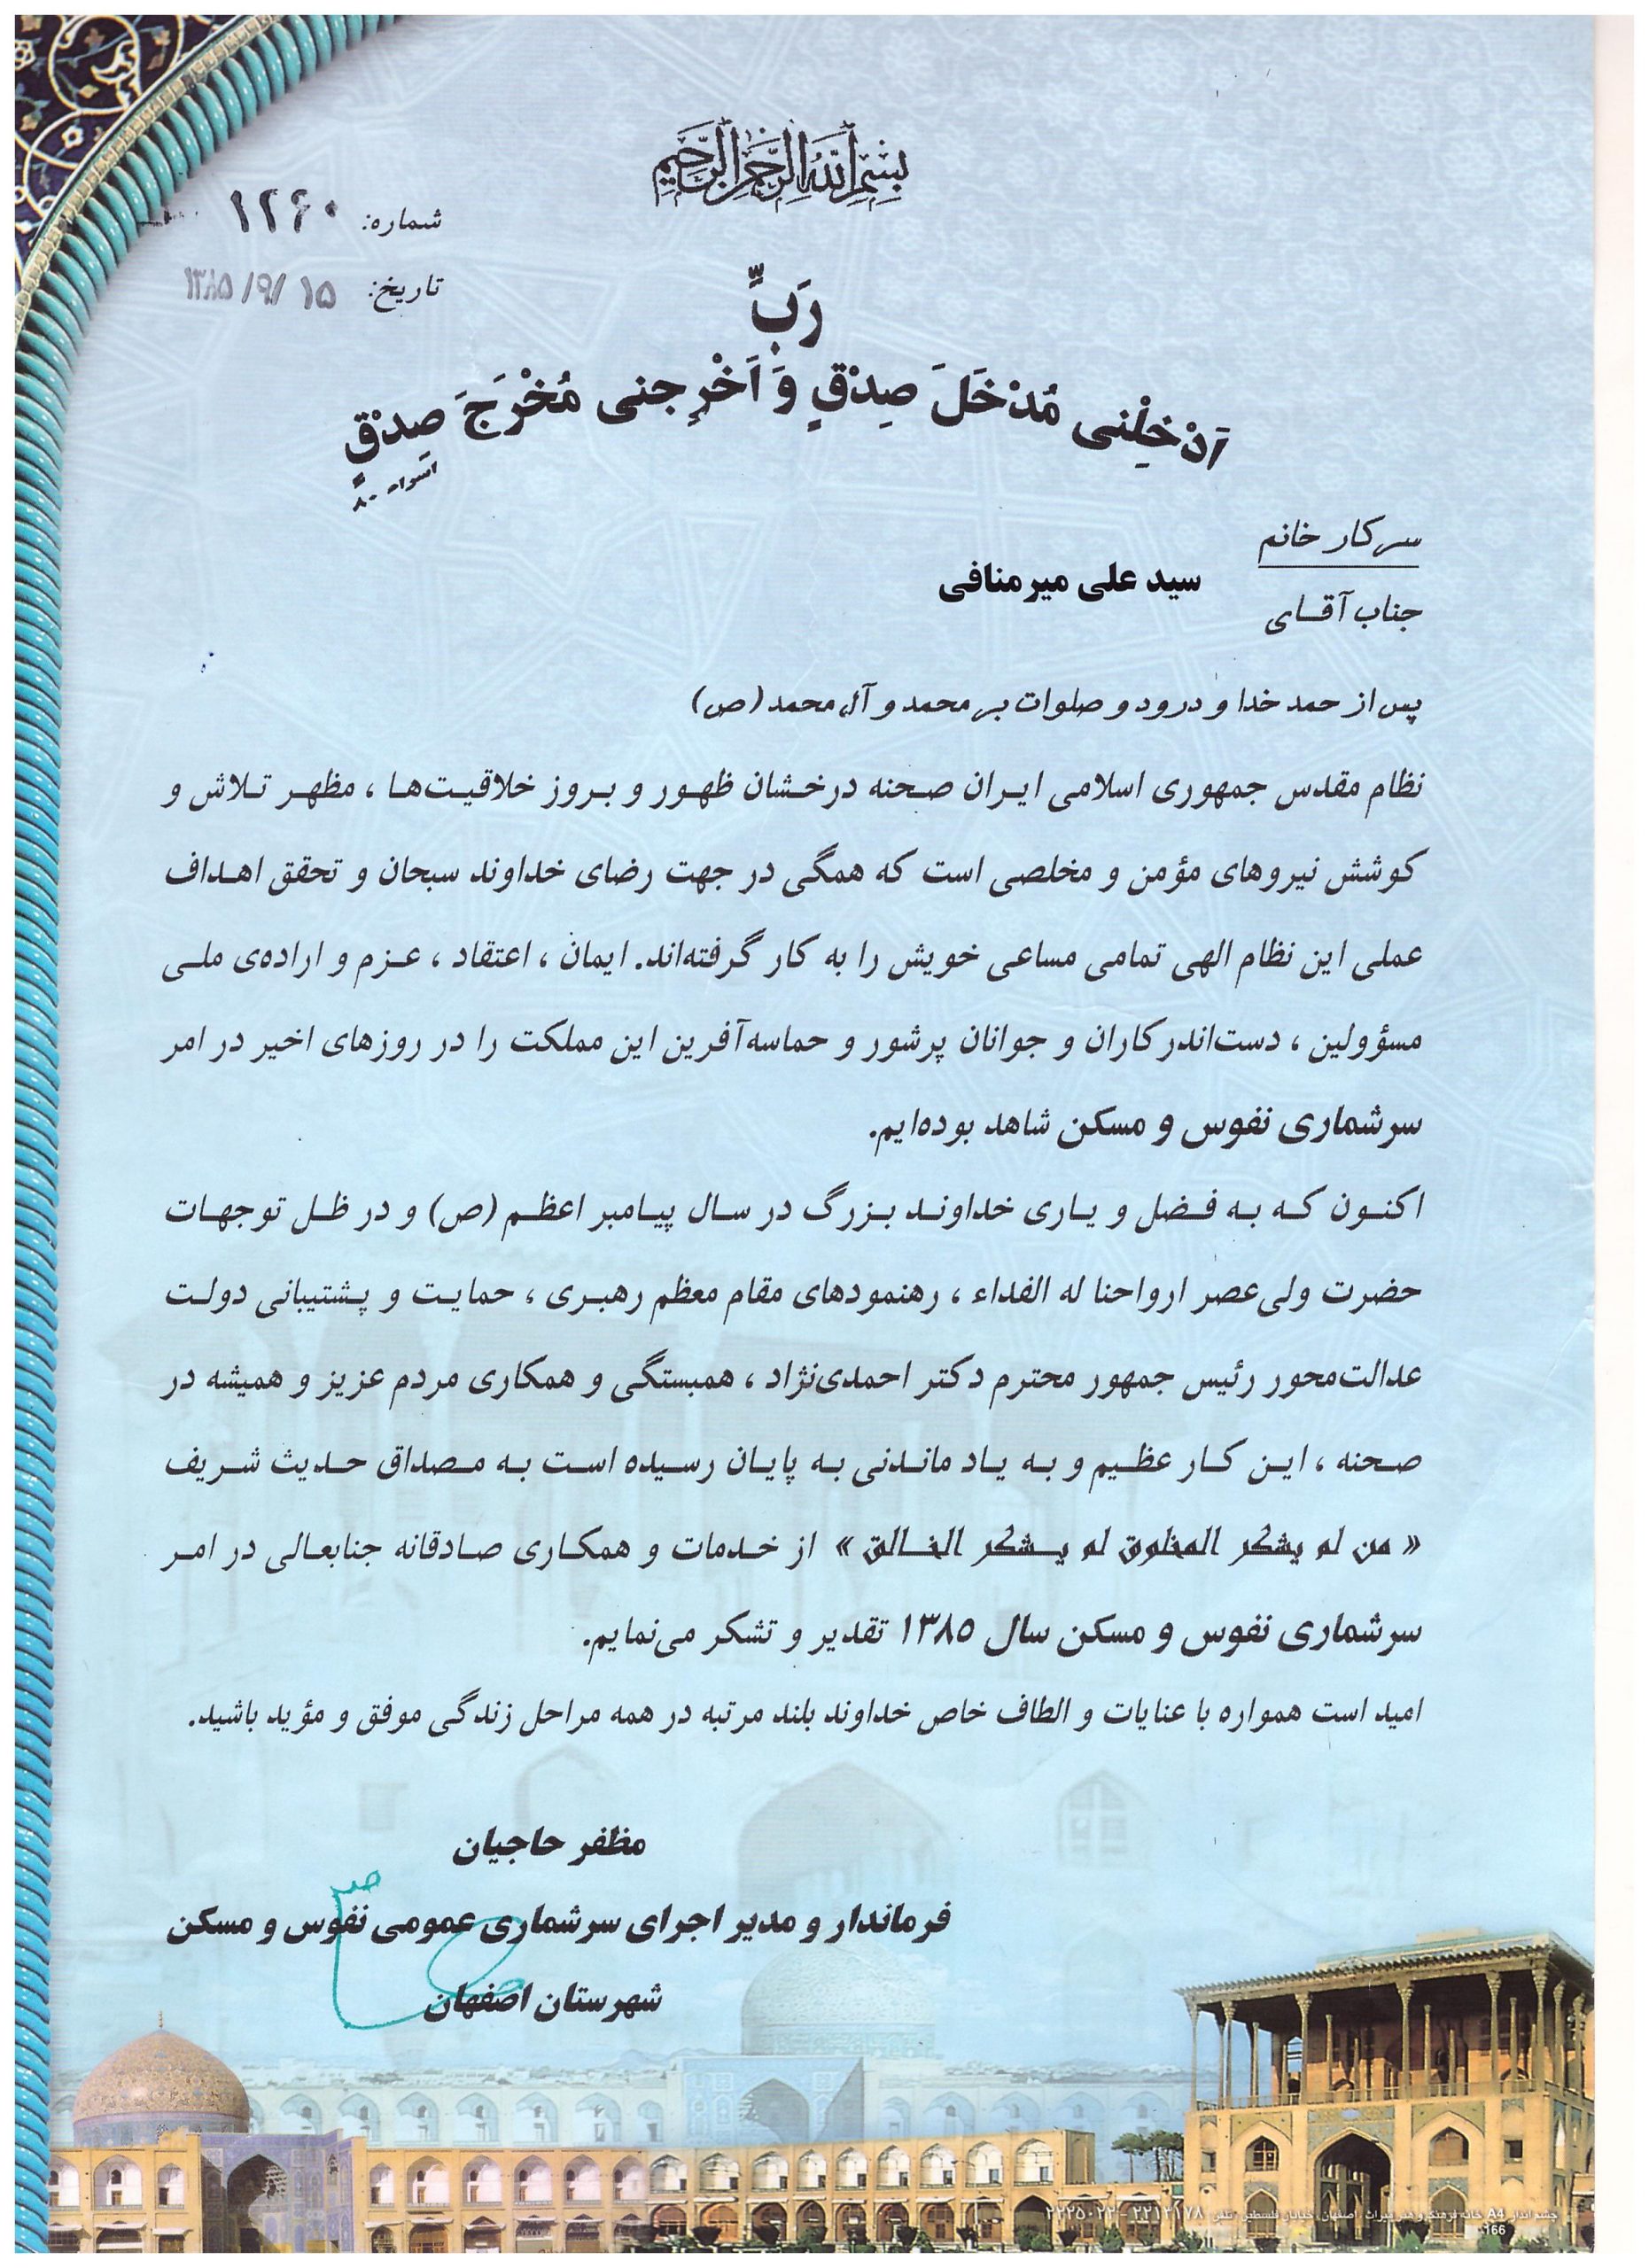 بسم الله الرحمن الرحیم
شماره: ۱۲۶۰
تاریخ: ۱۳۸۵/۹/۱۵
رَبِّ
اَدْخِلْنی مُدْخَلَ صِدْقٍ وَ اَخْرِجنی مُخْرَجَ صِدْقٍ
اسراء ۸۰
سرکار خانم
سید علی میرمنافی
جناب آقـای
پس از حمد خدا و درود و صلوات بر محمد و آل محمد (ص)
نظام مقدس جمهوری اسلامی ایـران صـحنه درخـشان ظهـور و بـروز خلاقیـت‌هـا ، مظهـر تـلاش و
کوشش نیروهای مؤمن و مخلصی است که همگی در جهت رضای خداوند سبحان و تحقق اهـداف
عملی این نظام الهی تمامی مساعی خویش را به کار گرفته‌اند. ایمان ، اعتقاد ، عـزم و اراده‌ی ملـی
مسؤولین ، دست‌اندرکاران و جوانان پرشور و حماسه‌آفرین این مملکت را در روزهای اخیر در امر
سرشماری نفوس و مسکن شاهد بوده‌ایم.
اکنـون کـه بـه فـضل و یـاری خداونـد بـزرگ در سـال پیـامبر اعظـم (ص) و در ظـل توجهـات
حضرت ولی‌عصر ارواحنا له الفداء ، رهنمودهای مقام معظم رهبـری ، حمایـت و پـشتیبانی دولـت
عدالت‌محور رئیس جمهور محترم دکتر احمدی‌نژاد ، همبستگی و همکاری مردم عزیز و همیشه در
صـحنه ، ایـن کـار عظـیم و بـه یـاد مانـدنی بـه پایـان رسـیده اسـت بـه مـصداق حـدیث شـریف
« من لم یشکر المخلوق لم یـشکر الخـالق » از خـدمات و همکـاری صـادقانه جنابعـالی در امـر
سرشماری نفوس و مسکن سال ۱۳۸۵ تقدیر و تشکر می‌نمایم.
امید است همواره با عنایات و الطاف خاص خداوند بلند مرتبه در همه مراحل زندگی موفق و مؤید باشید.
مظفر حاجیان
فرماندار و مدیر اجرای سرشماری عمومی نفوس و مسکن
شهرستان اصفهان
چشم انداز A4 خانه فرهنگ و هنر میراث ، اصفهان، خیابان فلسطین تلفن ۲۲۱۳۱۷۸ - ۲۲۲۵۰۲۲
166